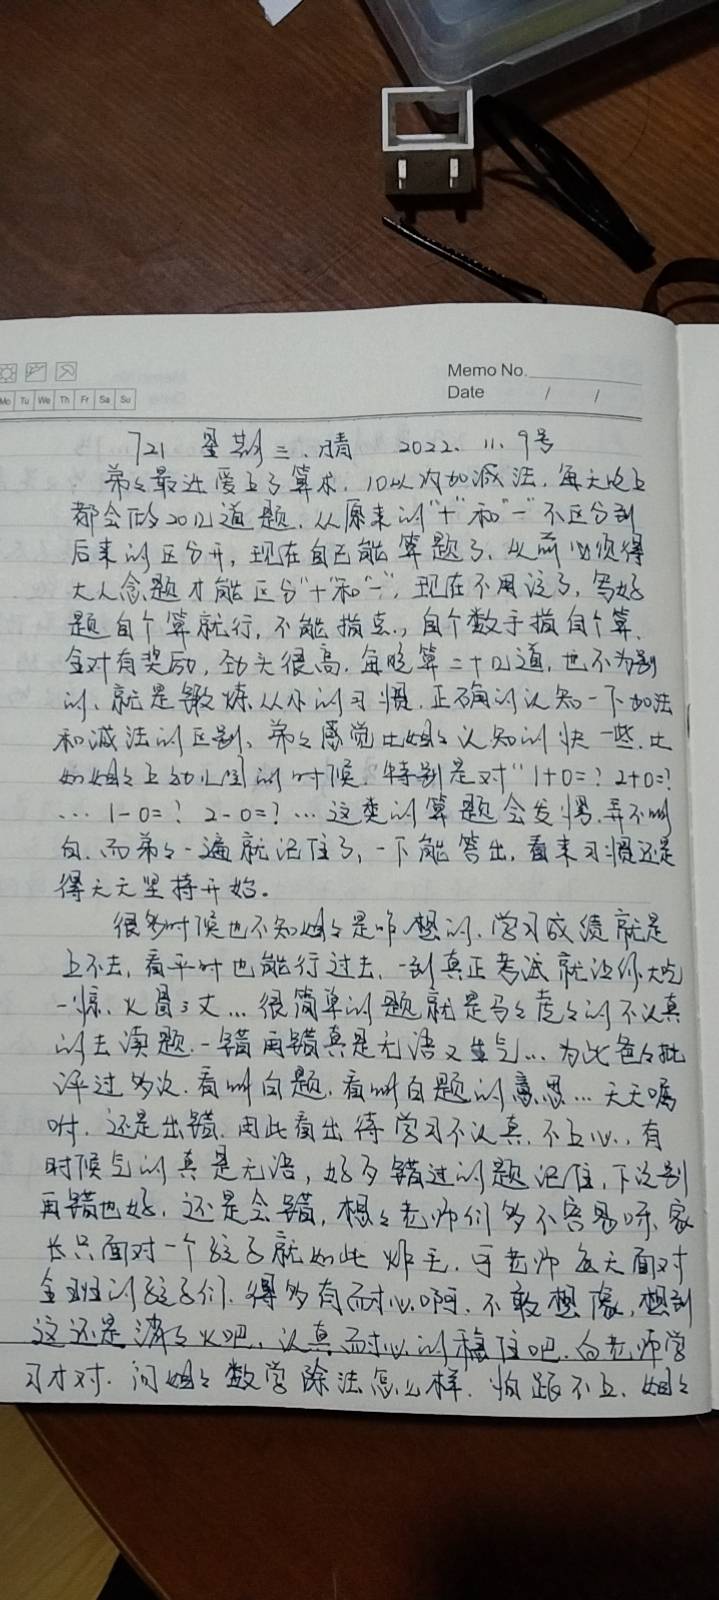 Memo No.
Date / /
Mo Tu We Th Fr Sa Su
721 星期三.晴 2022.11.9号
弟々最近爱上了算术.10以内加减法,每天晚上
都会的20几道题.从原来的"+"和"-"不区分到
后来的区分开,现在自己能算题了.从前必须得
大人念题才能区分"+"和"-",现在不用这了,写好
题自个算就行,不能指点.,自个数手指自个算.
全对有奖励,劲头很高.每晚算二十几道,也不为别
的、就是锻炼从小的习惯.正确的认知一下加法
和减法的区别、弟々感觉比姐々认知的快一些.比
如姐々上幼儿园的时候.特别是对"1+0=?2+0=?
… 1-0=? 2-0=?…这类的算题会发懵.弄不明
白.而弟々一遍就记住了,一下能答出,看来习惯还是
得天天坚持开始。
很多时候也不知姐々是咋想的.学习成绩就是
上不去,看平时也能行过去.一到真正考试就让你大吃
一惊.火冒3丈…很简单的题就是马々虎々的不认真
的去读题.一错再错真是无语又生气…为此爸々批
评过多次.看明白题.看明白题的意思…天天嘱
咐.还是出错.由此看出待学习不认真.不上心.有
时候气的真是无语,好歹错过的题记住,下次别
再错也好.还是会错,想々老师们多不容易呀.家
长只面对一个孩子就如此炸毛.可老师每天面对
全班的孩子们.得多有耐心啊.不敢想像,想到
这还是消々火吧.认真耐心的稳住吧.向老师学
习才对.问姐々数学除法怎么样.怕跟不上.姐々